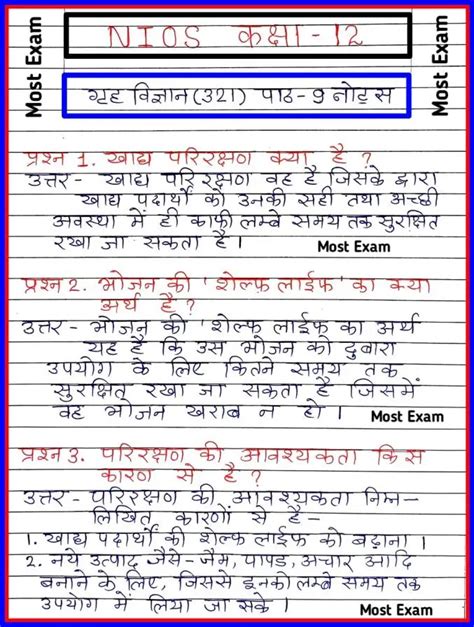 NIOS कक्षा-12
Most Exam
Most Exam
गृह विज्ञान (321) पाठ-9 नोट्स
प्रश्न 1. खाद्य परिरक्षण क्या है ?
उत्तर- खाद्य परिरक्षण वह है जिसके द्वारा
खाद्य पदार्थों को उनकी सही तथा अच्छी
अवस्था में ही काफी लम्बे समय तक सुरक्षित
रखा जा सकता है।
Most Exam
प्रश्न 2. भोजन की 'शेल्फ़ लाईफ' का क्या
अर्थ है ?
उत्तर - भोजन की 'शेल्फ़ लाईफ़ का अर्थ
यह है कि उस भोजन को दुबारा
उपयोग के लिए कितने समय तक
सुरक्षित रखा जा सकता है जिसमें
वह भोजन खराब न हो।
Most Exam
प्रश्न 3. परिरक्षण की आवश्यकता किस
कारण से है ?
उत्तर - परिरक्षण की आवश्यकता निम्न-
लिखित कारणों से है -
1. खाद्य पदार्थों की शेल्फ लाईफ को बढ़ाना।
2. नये उत्पाद जैसे- जैम, पापड़, अचार आदि
बनाने के लिए, जिससे इनको लम्बे समय तक
उपयोग में लिया जा सके।
Most Exam